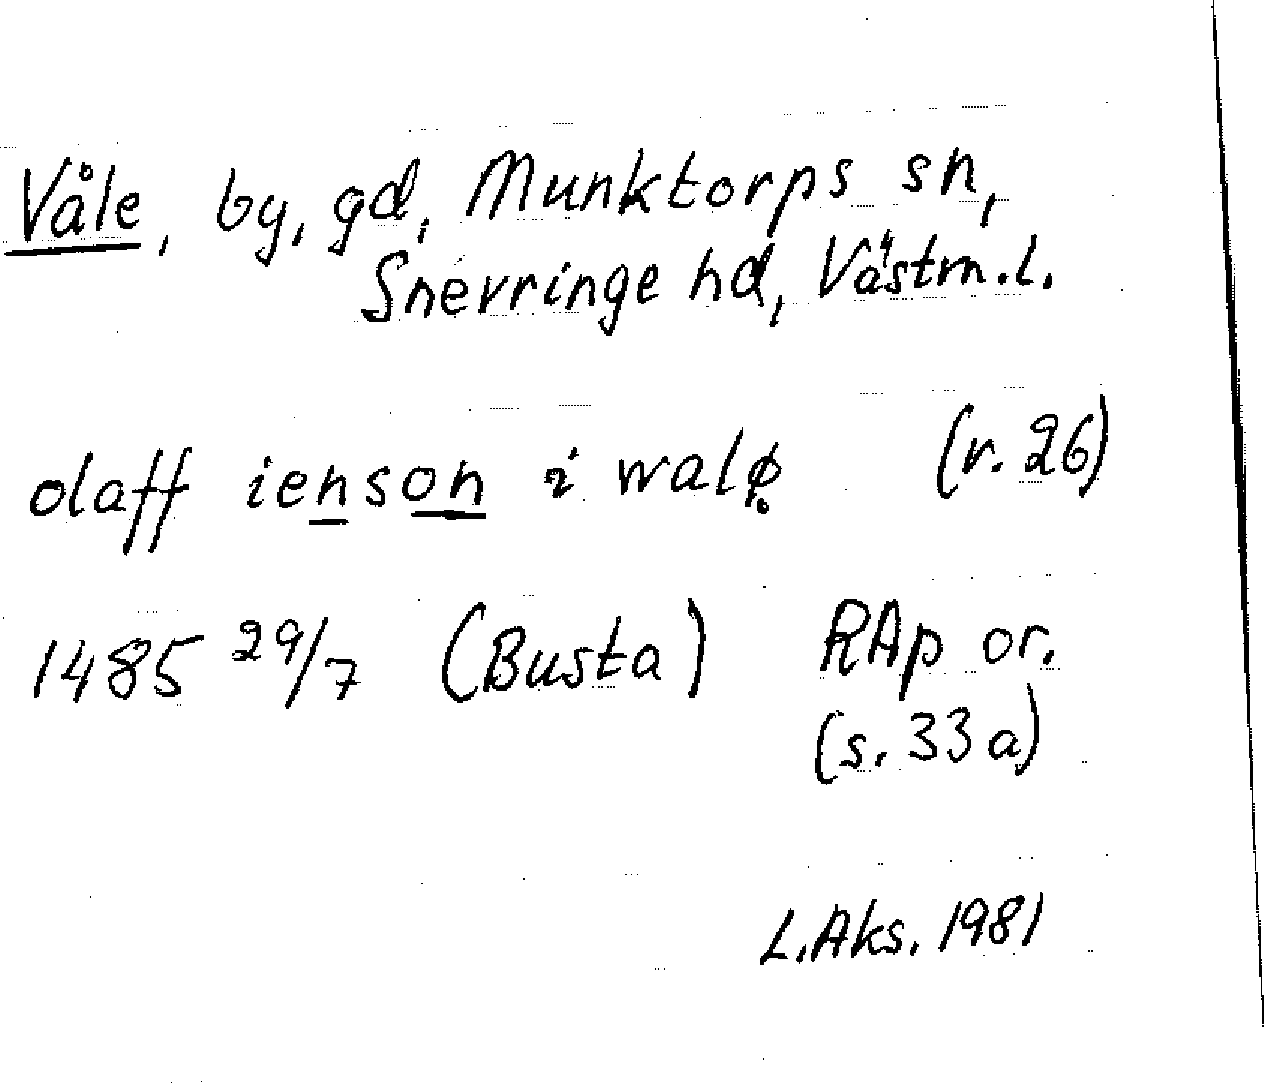 Våle, by, gd, Munktorps sn,
Snevringe hd, Västm.l.
olaff ienson i walø̣ (r. 26)
1485 29/7 (Busta) RAp or.
(s. 33a)
L.Aks. 1981